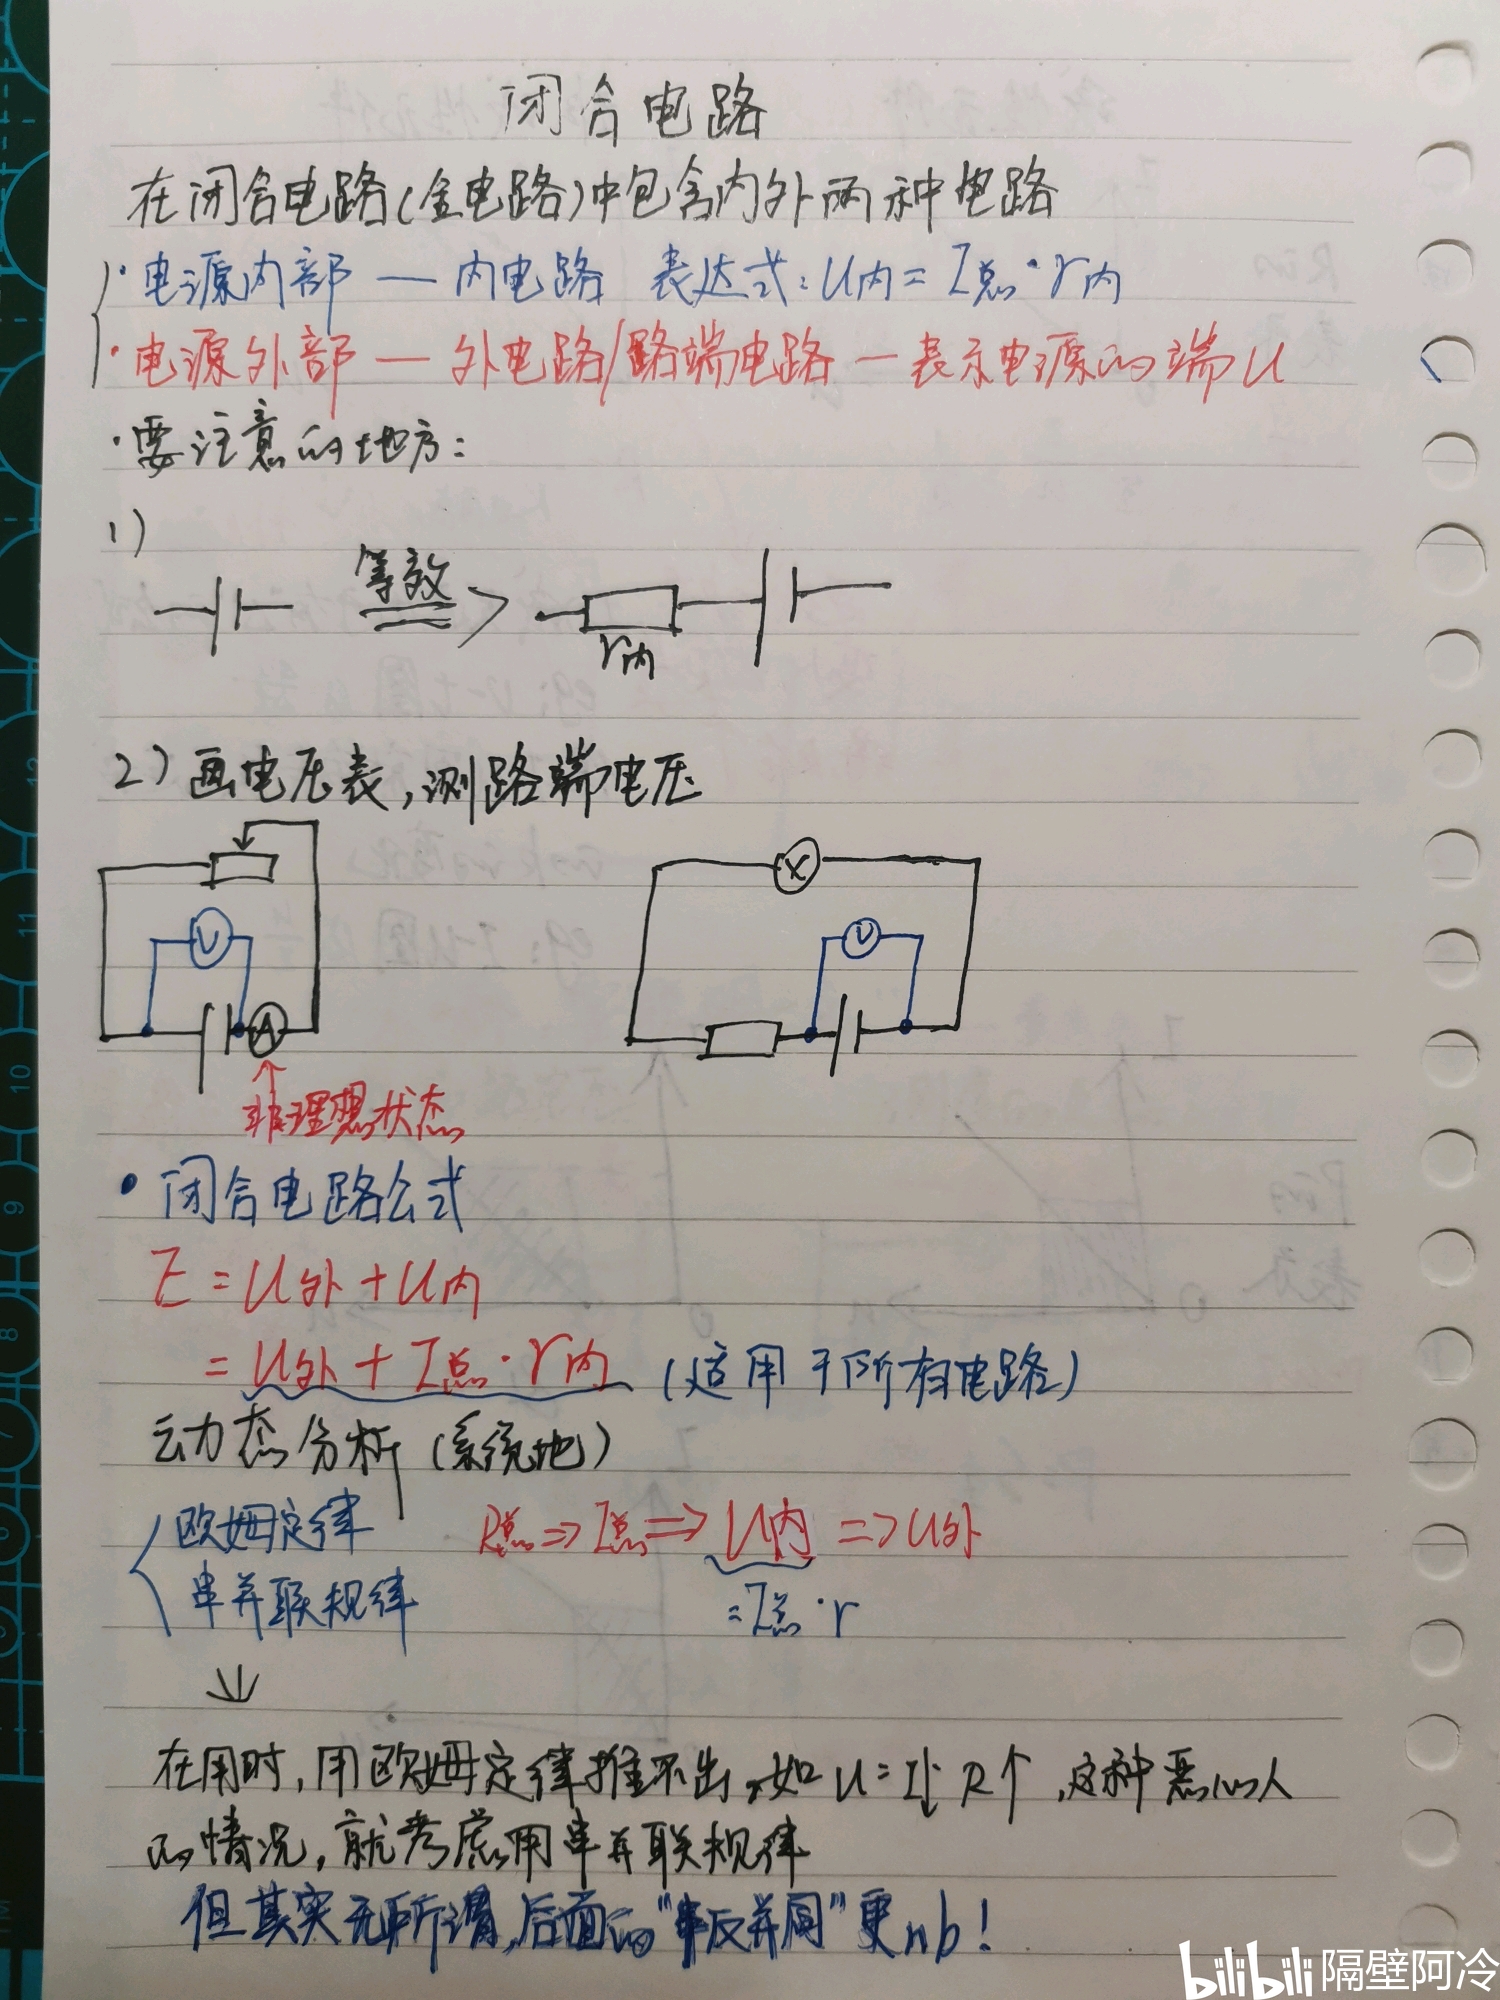 闭合电路
在闭合电路(全电路)中包含内外两种电路
·电源内部 — 内电路 表达式:U内=I总·r内
·电源外部 — 外电路/路端电路 — 表示电源的端U
·要注意的地方:
1)
等效
r内
2)画电压表,测路端电压
V
A
X
V
非理想状态
·闭合电路公式
E=U外+U内
=U外+I总·r内 (适用于所有电路)
动态分析(系统地)
欧姆定律 R总⇒I总⇒U内⇒U外
串并联规律 =I总·r
在用时,用欧姆定律推不出,如U=I↓R↑,这种恶心人
的情况,就考虑用串并联规律
但其实无所谓,后面的“串反并同”更nb!
bilibili 隔壁阿冷
13
11
10
9
8
7